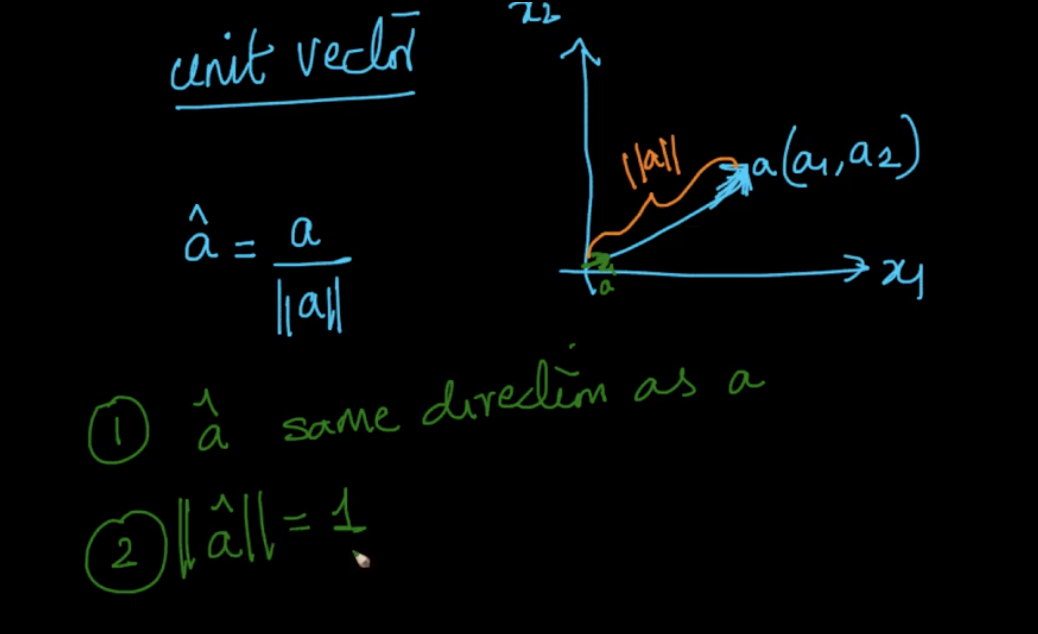 unit vector
x2
||a||
a(a1, a2)
â = a / ||a||
a
x1
① â same direction as a
② ||â|| = 1